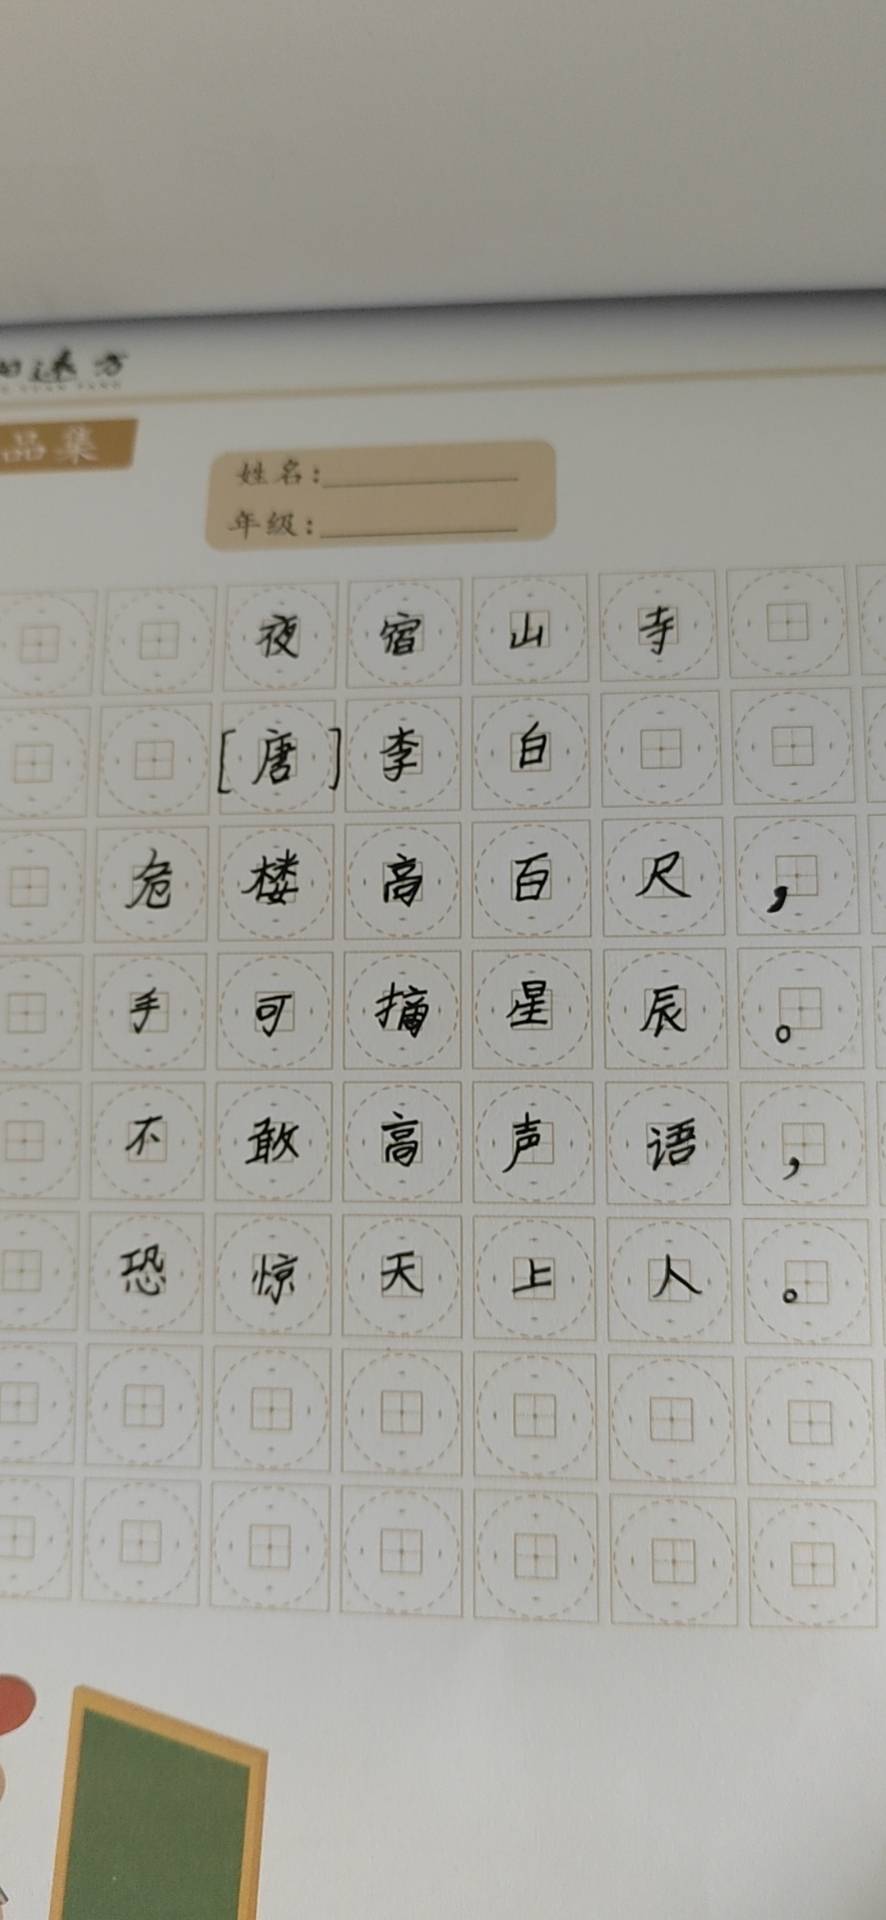 远方
品集
姓名：
年级：
夜宿山寺
[唐]李白
危楼高百尺，
手可摘星辰。
不敢高声语，
恐惊天上人。